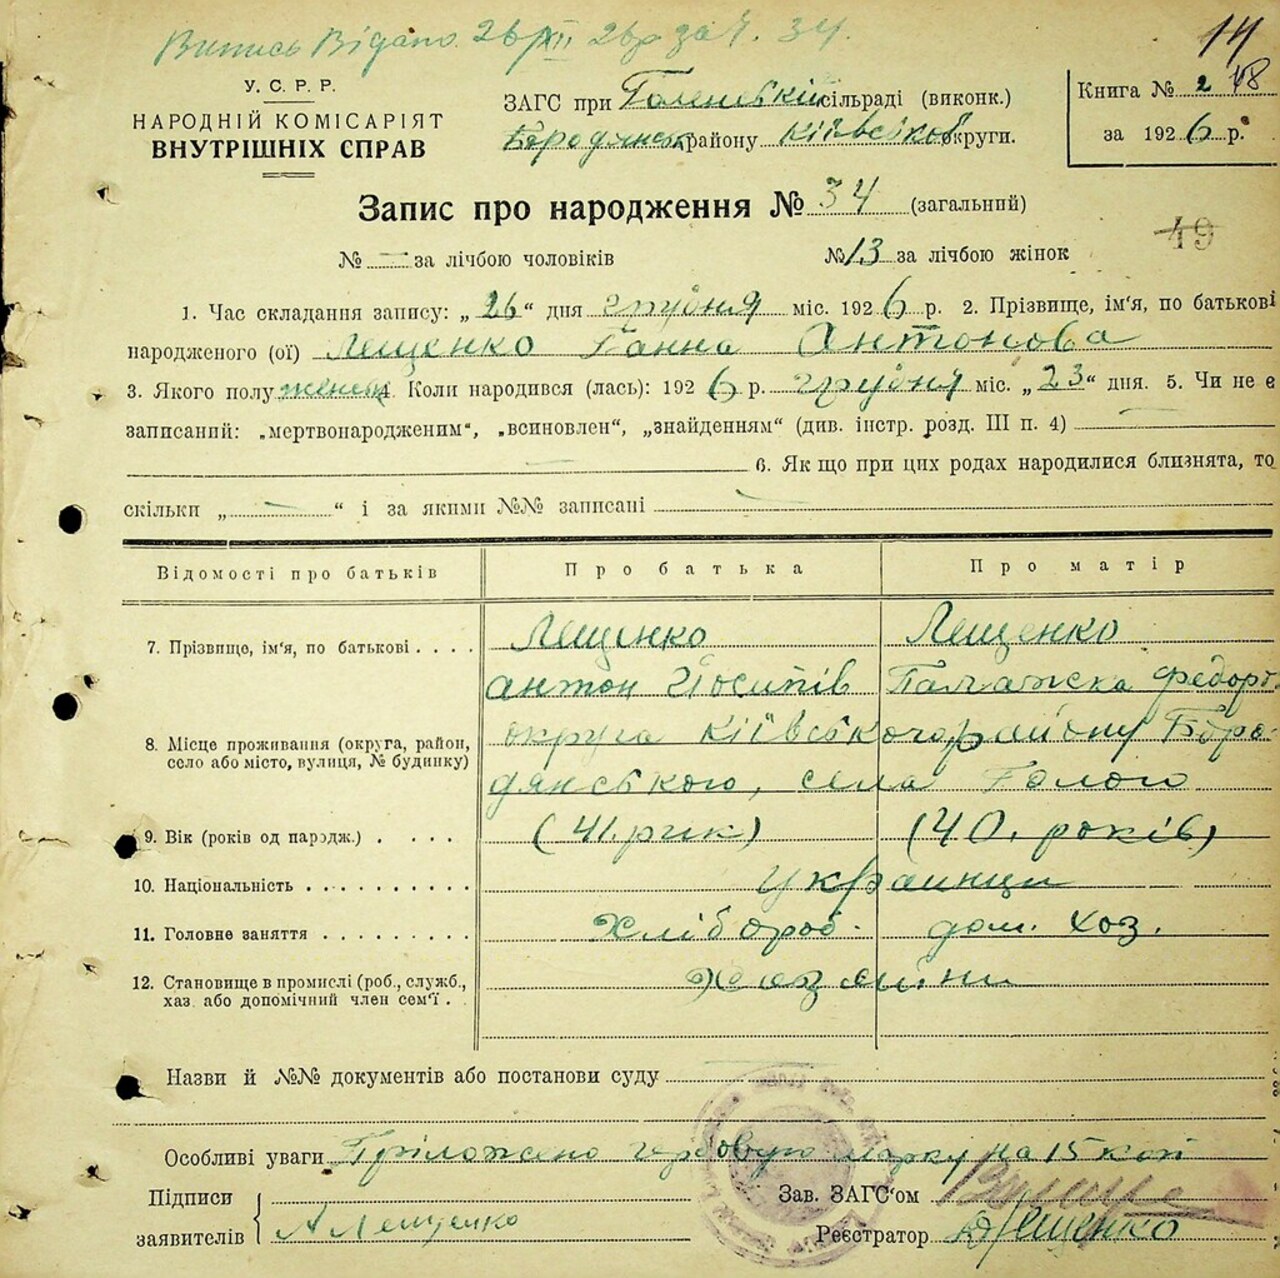 Випись Видано 26/XII 26р за Ч. 34.
14
У. С. Р. Р.
НАРОДНІЙ КОМІСАРІЯТ
ВНУТРІШНІХ СПРАВ
ЗАГС при сільраді (виконк.)
Бородянськ району Київської округи.
Книга № 2
за 1926 р.
Запис про народження № 34 (загальний)
49
№ — за лічбою чоловіків № 13 за лічбою жінок
1. Час складання запису: „26“ дня грудня міс. 1926 р. 2. Прізвище, ім'я, по батькові
народженого (ої) Лещенко Ганна Антонова
3. Якого полу женськ 4. Коли народився (лась): 1926 р. грудня міс. „23“ дня. 5. Чи не є
записаний: „мертвонародженим“, „всиновлен“, „знайденням“ (див. інстр. розд. III п. 4) —
— 6. Якщо при цих родах народилися близнята, то
скільки „—“ і за якими №№ записані —
Відомості про батьків Про батька Про матір
7. Прізвище, ім'я, по батькові . . . . Лещенко Лещенко
Антон Йосипів Палажка Федорі
8. Місце проживання (округа, район, округа Київського, району Боро-
село або місто, вулиця, № будинку) дянського, села
9. Вік (років од народж.) . . . . (41. рик) (40. років)
10. Національність . . . . . . . . . . українци
11. Головне заняття . . . . . . . . . Хлібороб. дом. хоз.
12. Становище в промислі (роб., служб., Хазяини
хаз. або допомічний член сем'ї . .
Назви й №№ документів або постанови суду —
Особливі уваги Приложено гербовую марку на 15 коп
Підписи Зав. ЗАГС'ом
заявителів А Лещенко Реєстратор Лещенко